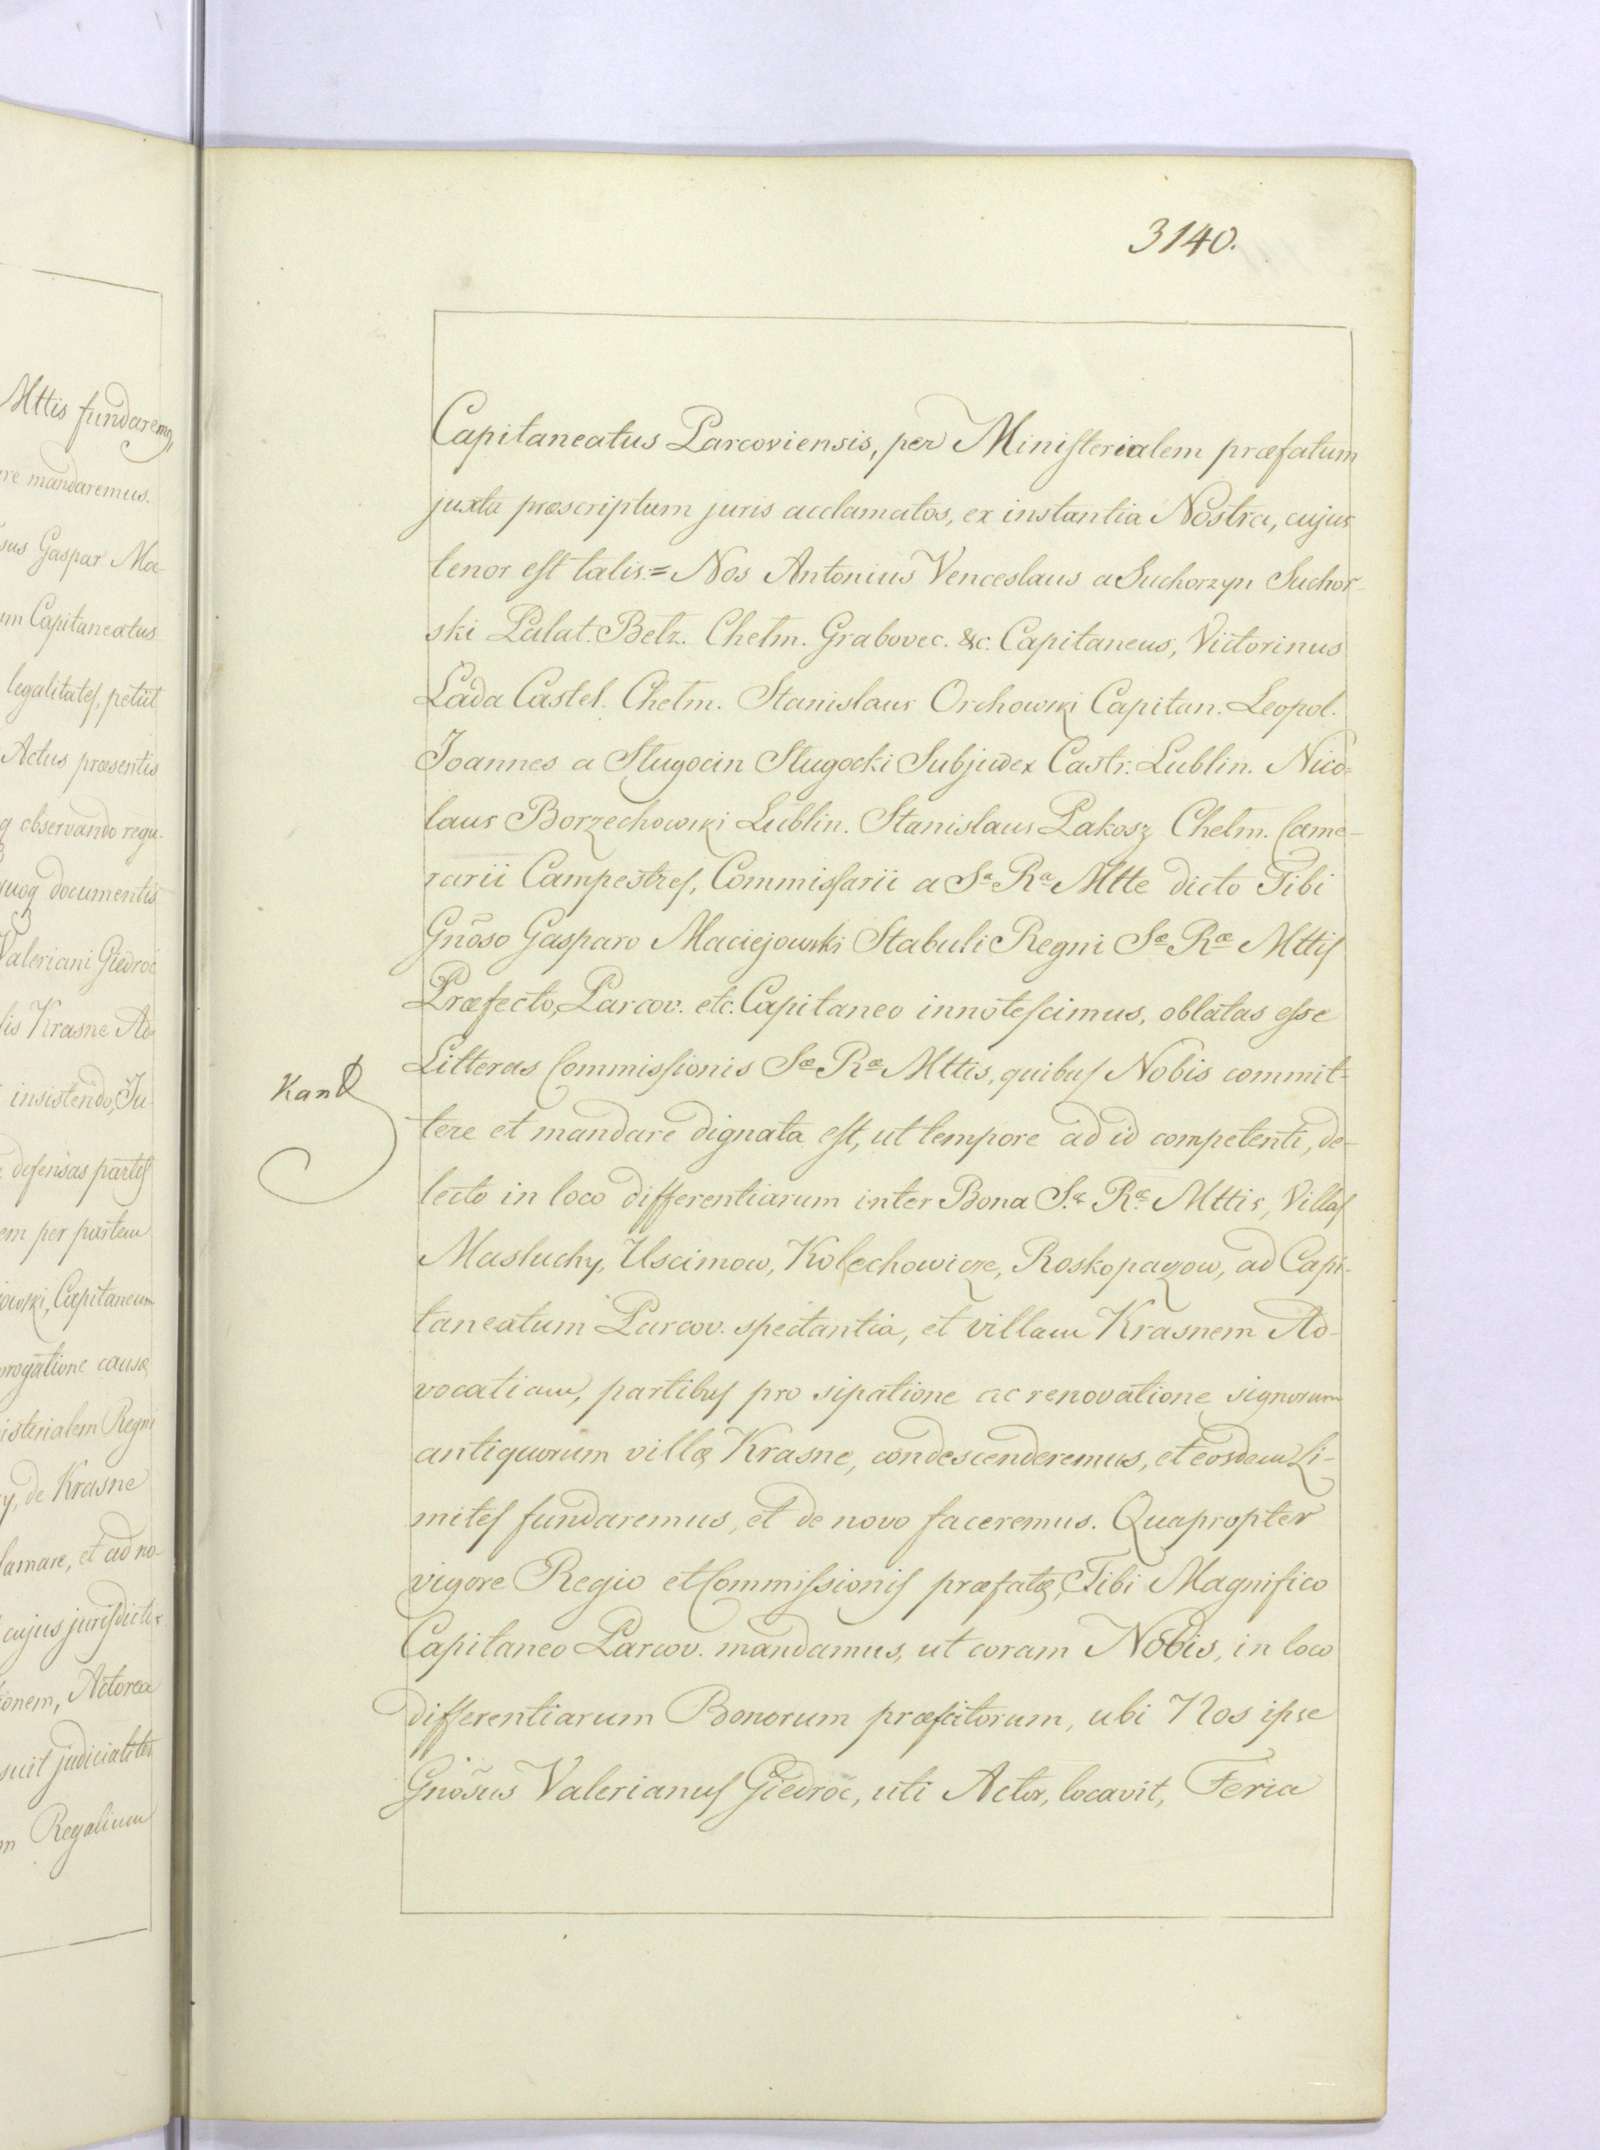 Mttis fundaremq
re mandaremus.
sus Gaspar Ma-
um Capitaneatus
legalitates, petiit
Actus præsentis
q observando regu-
quoq documentis
Valeriani Giedroć
lis Krasne Ad-
insistendo, Ju-
defensas partes
em per partem
jowski, Capitaneum
prorogatione causæ
isterialem Regni
y, de Krasne
lamare, et ad no-
cujus jurisdicti
onem, Actorea
suit judicialiter
m Regalium
3140.
Capitaneatus Parcoviensis, per Ministerialem præfatum
juxta præscriptum juris acclamatos, ex instantia Nostra, cujus
tenor est talis:= Nos Antonius Venceslaus a Suchorzyn Suchor-
ski Palat. Belz. Chelm. Grabovec. &c. Capitaneus, Victorinus
Lada Castel. Chelm. Stanislaus Orchowski Capitan. Leopol.
Joannes a Slugocin Slugocki Subjudex Castr. Lublin. Nico-
laus Borzechowski Lublin. Stanislaus Pakosz Chelm. Came-
rarii Campestres, Commissarii a Sa Ra Mtte dicto Tibi
Gnõso Gasparo Maciejowski Stabuli Regni Sæ Ræ Mttis
Præfecto, Parcov. etc. Capitaneo innotescimus, oblatas esse
Litteras Commissionis Sæ Ræ Mttis, quibus Nobis commit-
tere et mandare dignata est, ut tempore ad id competenti, de-
lecto in loco differentiarum inter Bona Sæ Ræ Mttis, Villas
Masluchy, Uscimow, Kolechowicze, Roskopaczow, ad Capi-
taneatum Parcov. spectantia, et villam Krasnem Ad-
vocatiam, partibus pro sipatione ac renovatione signorum
antiquorum villæ Krasne, condescenderemus, et eosdem Li-
mites fundaremus, et de novo faceremus. Quapropter
vigore Regio et Commissionis præfatæ, Tibi Magnifico
Capitaneo Parcov. mandamus, ut coram Nobis, in loco
differentiarum Bonorum præfatorum, ubi Nos ipse
Gnõsus Valerianus Giedroć, uti Actor, locavit, Feria